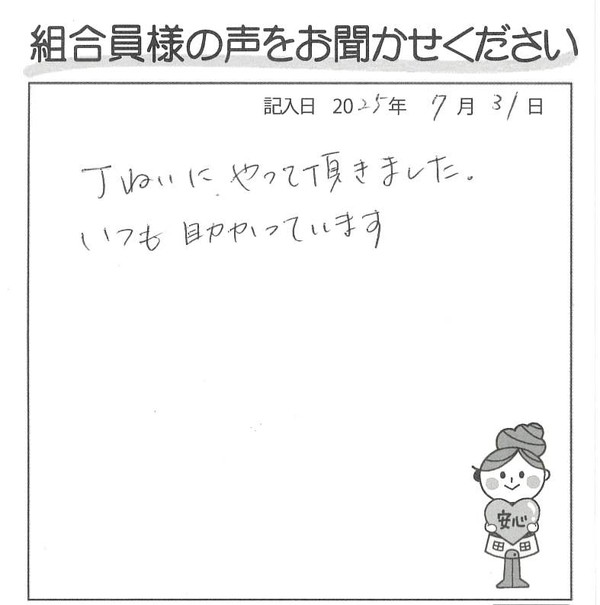 組合員様の声をお聞かせください
記入日 2025年 7月 31日
丁ねいに やって頂きました。
いつも 助かっています
安心